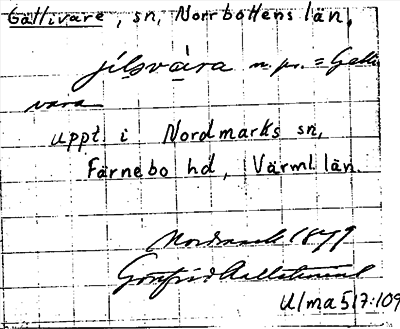 Gällivare, sn, Norrbottens län,
jilsvára n. pr. = Gelli
vara
uppt. i Nordmarks sn,
Färnebo hd, Värml. län.
Nordmark 1879
Gottfrid Kallstenius
Ulma 517:109